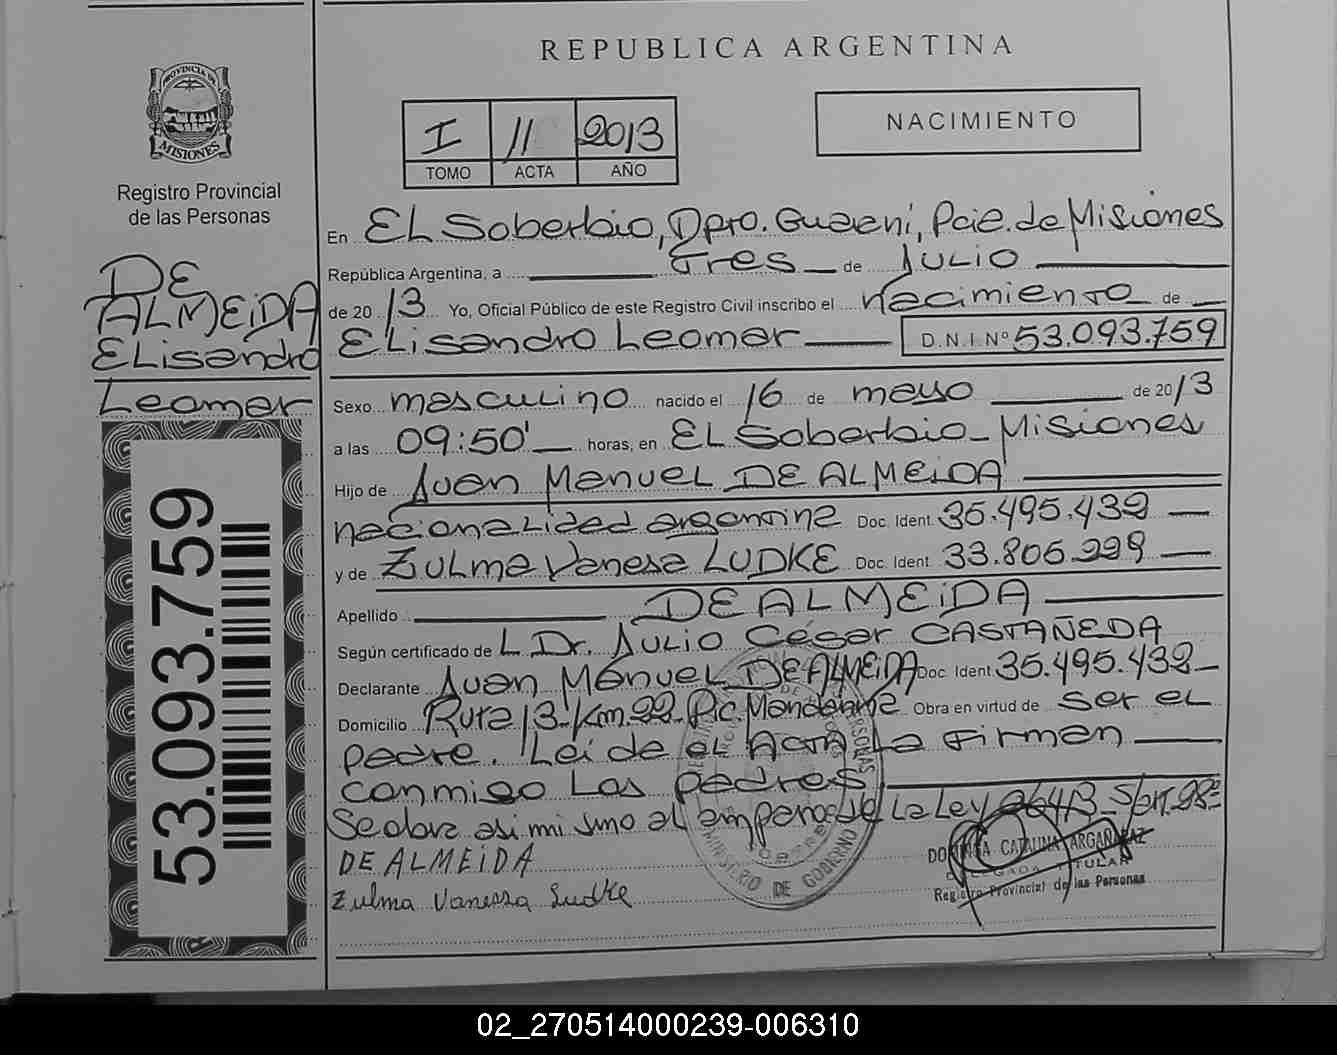 REPUBLICA ARGENTINA
PROVINCIA DE
MISIONES
Registro Provincial
de las Personas
I 11 2013
TOMO ACTA AÑO
NACIMIENTO
DE
ALMEIDA
ELisandro
Leomar
53.093.759
En EL Soberbio, Dpto. Guarani, Pcia. de Misiones
República Argentina, a tres de JULIO
de 2013 Yo, Oficial Público de este Registro Civil inscribo el nacimiento de
ELisandro Leomar D.N.I. Nº 53.093.759
Sexo masculino nacido el 16 de mayo de 2013
a las 09:50' horas, en EL Soberbio - Misiones
Hijo de Juan Manuel DE ALMEIDA
nacionalidad argentina Doc. Ident. 35.495.432
y de Zulma Vanesa LUDKE Doc. Ident. 33.806.998
Apellido DE ALMEIDA
Según certificado de L Dr. JULIO César CASTAÑEDA
Declarante Juan Manuel DE ALMEIDA Doc. Ident. 35.495.432
Domicilio Ruta 13 Km. 22 - Pic. Mandarina Obra en virtud de ser el
padre. Leída el ACTA La Firman
conmigo Los padres
Se labra asimismo al amparo de La Ley 26413 S/art. 28º
DE ALMEIDA
Zulma Vanessa Ludke
CATALINA
DELEGADA TITULAR
Registro Provincial de las Personas
MINISTERIO DE GOBIERNO
02_270514000239-006310